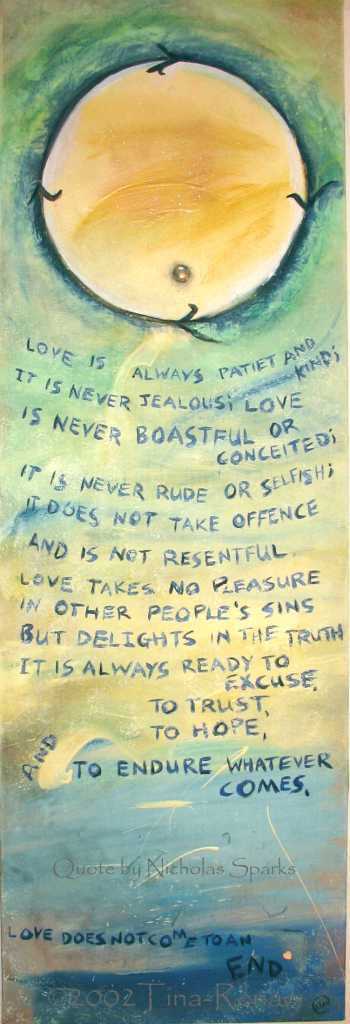 LOVE IS ALWAYS PATIET AND
KIND;
IT IS NEVER JEALOUS; LOVE
IS NEVER BOASTFUL OR
CONCEITED;
IT IS NEVER RUDE OR SELFISH;
IT DOES NOT TAKE OFFENCE
AND IS NOT RESENTFUL.
LOVE TAKES NO PLEASURE
IN OTHER PEOPLE'S SINS
BUT DELIGHTS IN THE TRUTH
IT IS ALWAYS READY TO
EXCUSE,
TO TRUST,
TO HOPE,
AND TO ENDURE WHATEVER
COMES.
Quote by Nicholas Sparks
LOVE DOES NOT COME TO AN
END.
©2002 Tina-